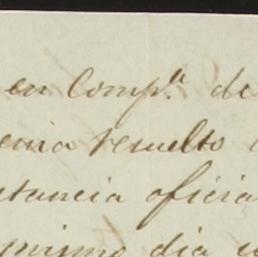 en Comp.ª de
enia resuelto
stancia oficia
mismo dia